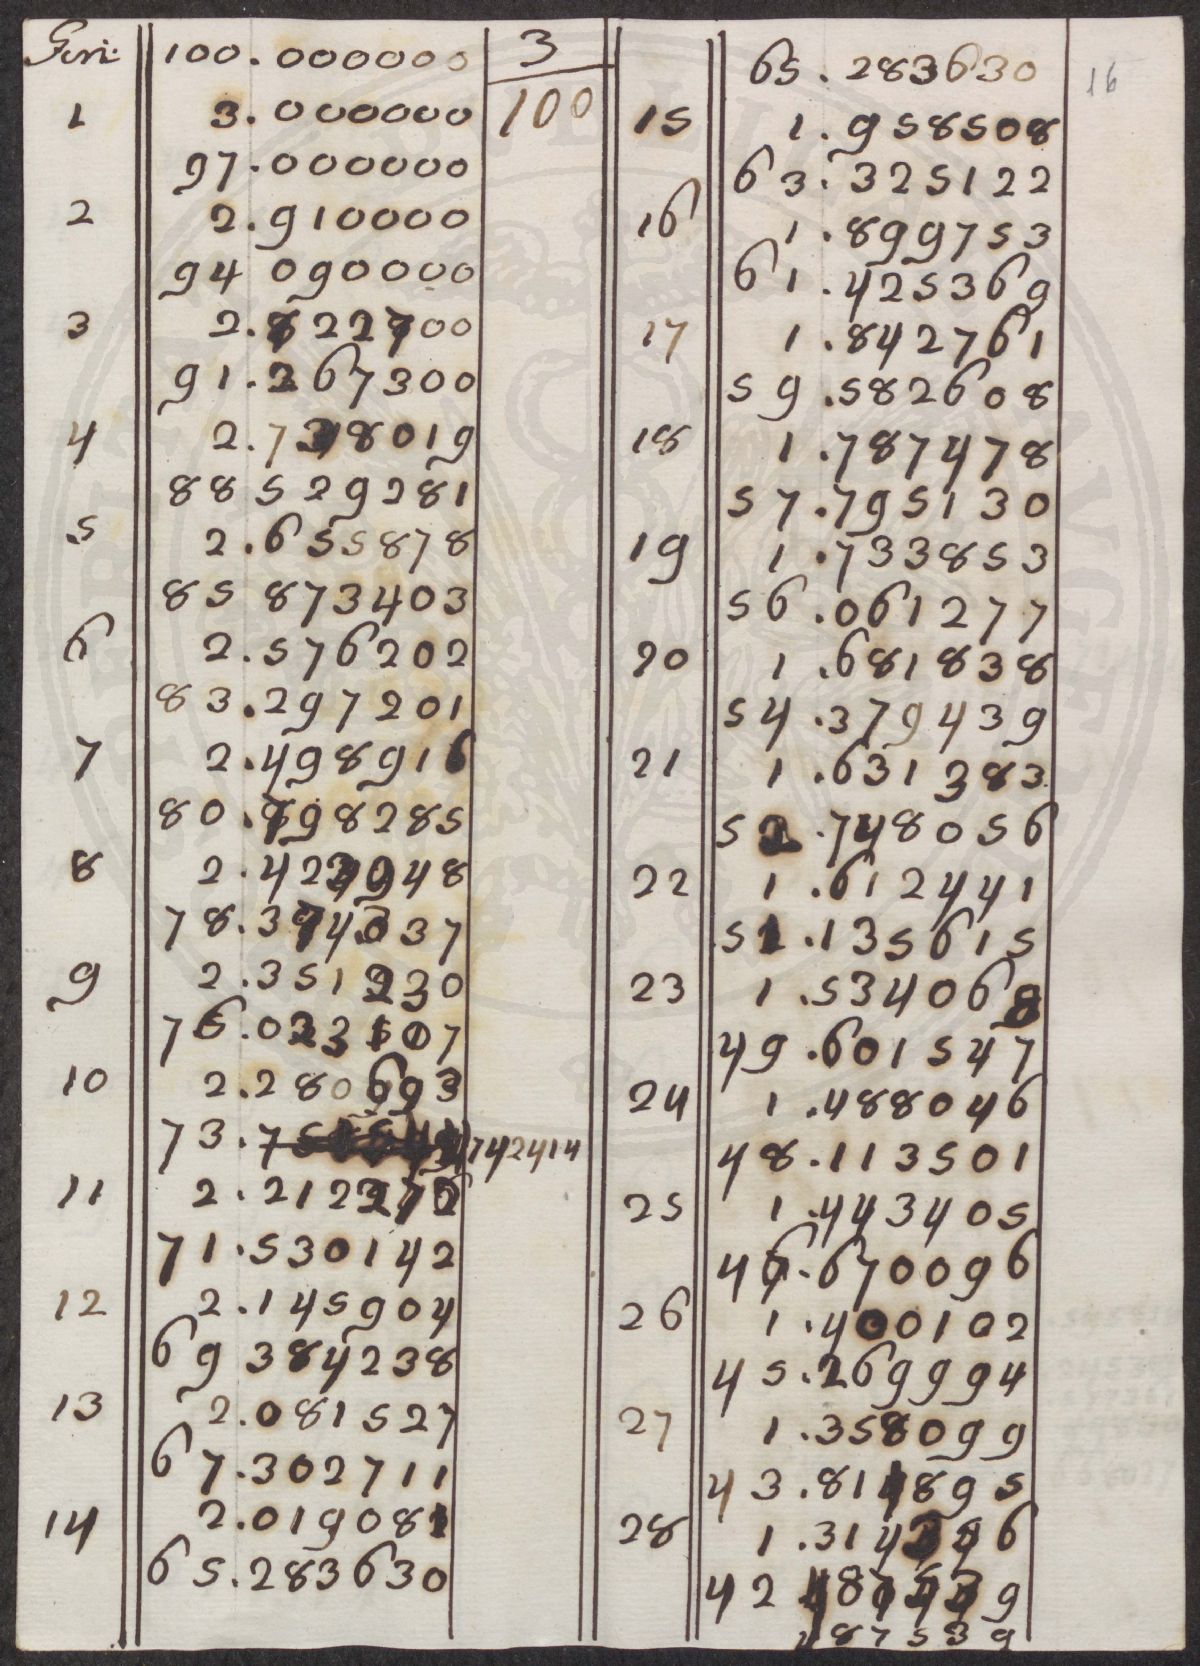 100.000000 3
1 3.000000 100
97.000000
2 2.910000
94 090000
3 2.822700
91.267300
4 2.738019
88 529281
5 2.655878
85 873403
6 2.576202
83.297201
7 2.498916
80.798285
8 2.423948
78.374337
9 2.351230
76.023107
10 2.280693
73.742414
11 2.212272
71.530142
12 2.145904
69 384238
13 2.081527
67.302711
14 2.019081
65.283630
65.283630 16
15 1.958508
63.325122
16 1.899753
61.425369
17 1.842761
59.582608
18 1.787478
57.795130
19 1.733853
56.061277
20 1.681838
54.379439
21 1.631383
52.748056
22 1.612441
51.135615
23 1.534068
49.601547
24 1.488046
48.113501
25 1.443405
46.670096
26 1.400102
45.269994
27 1.358099
43.811895
28
42
487539